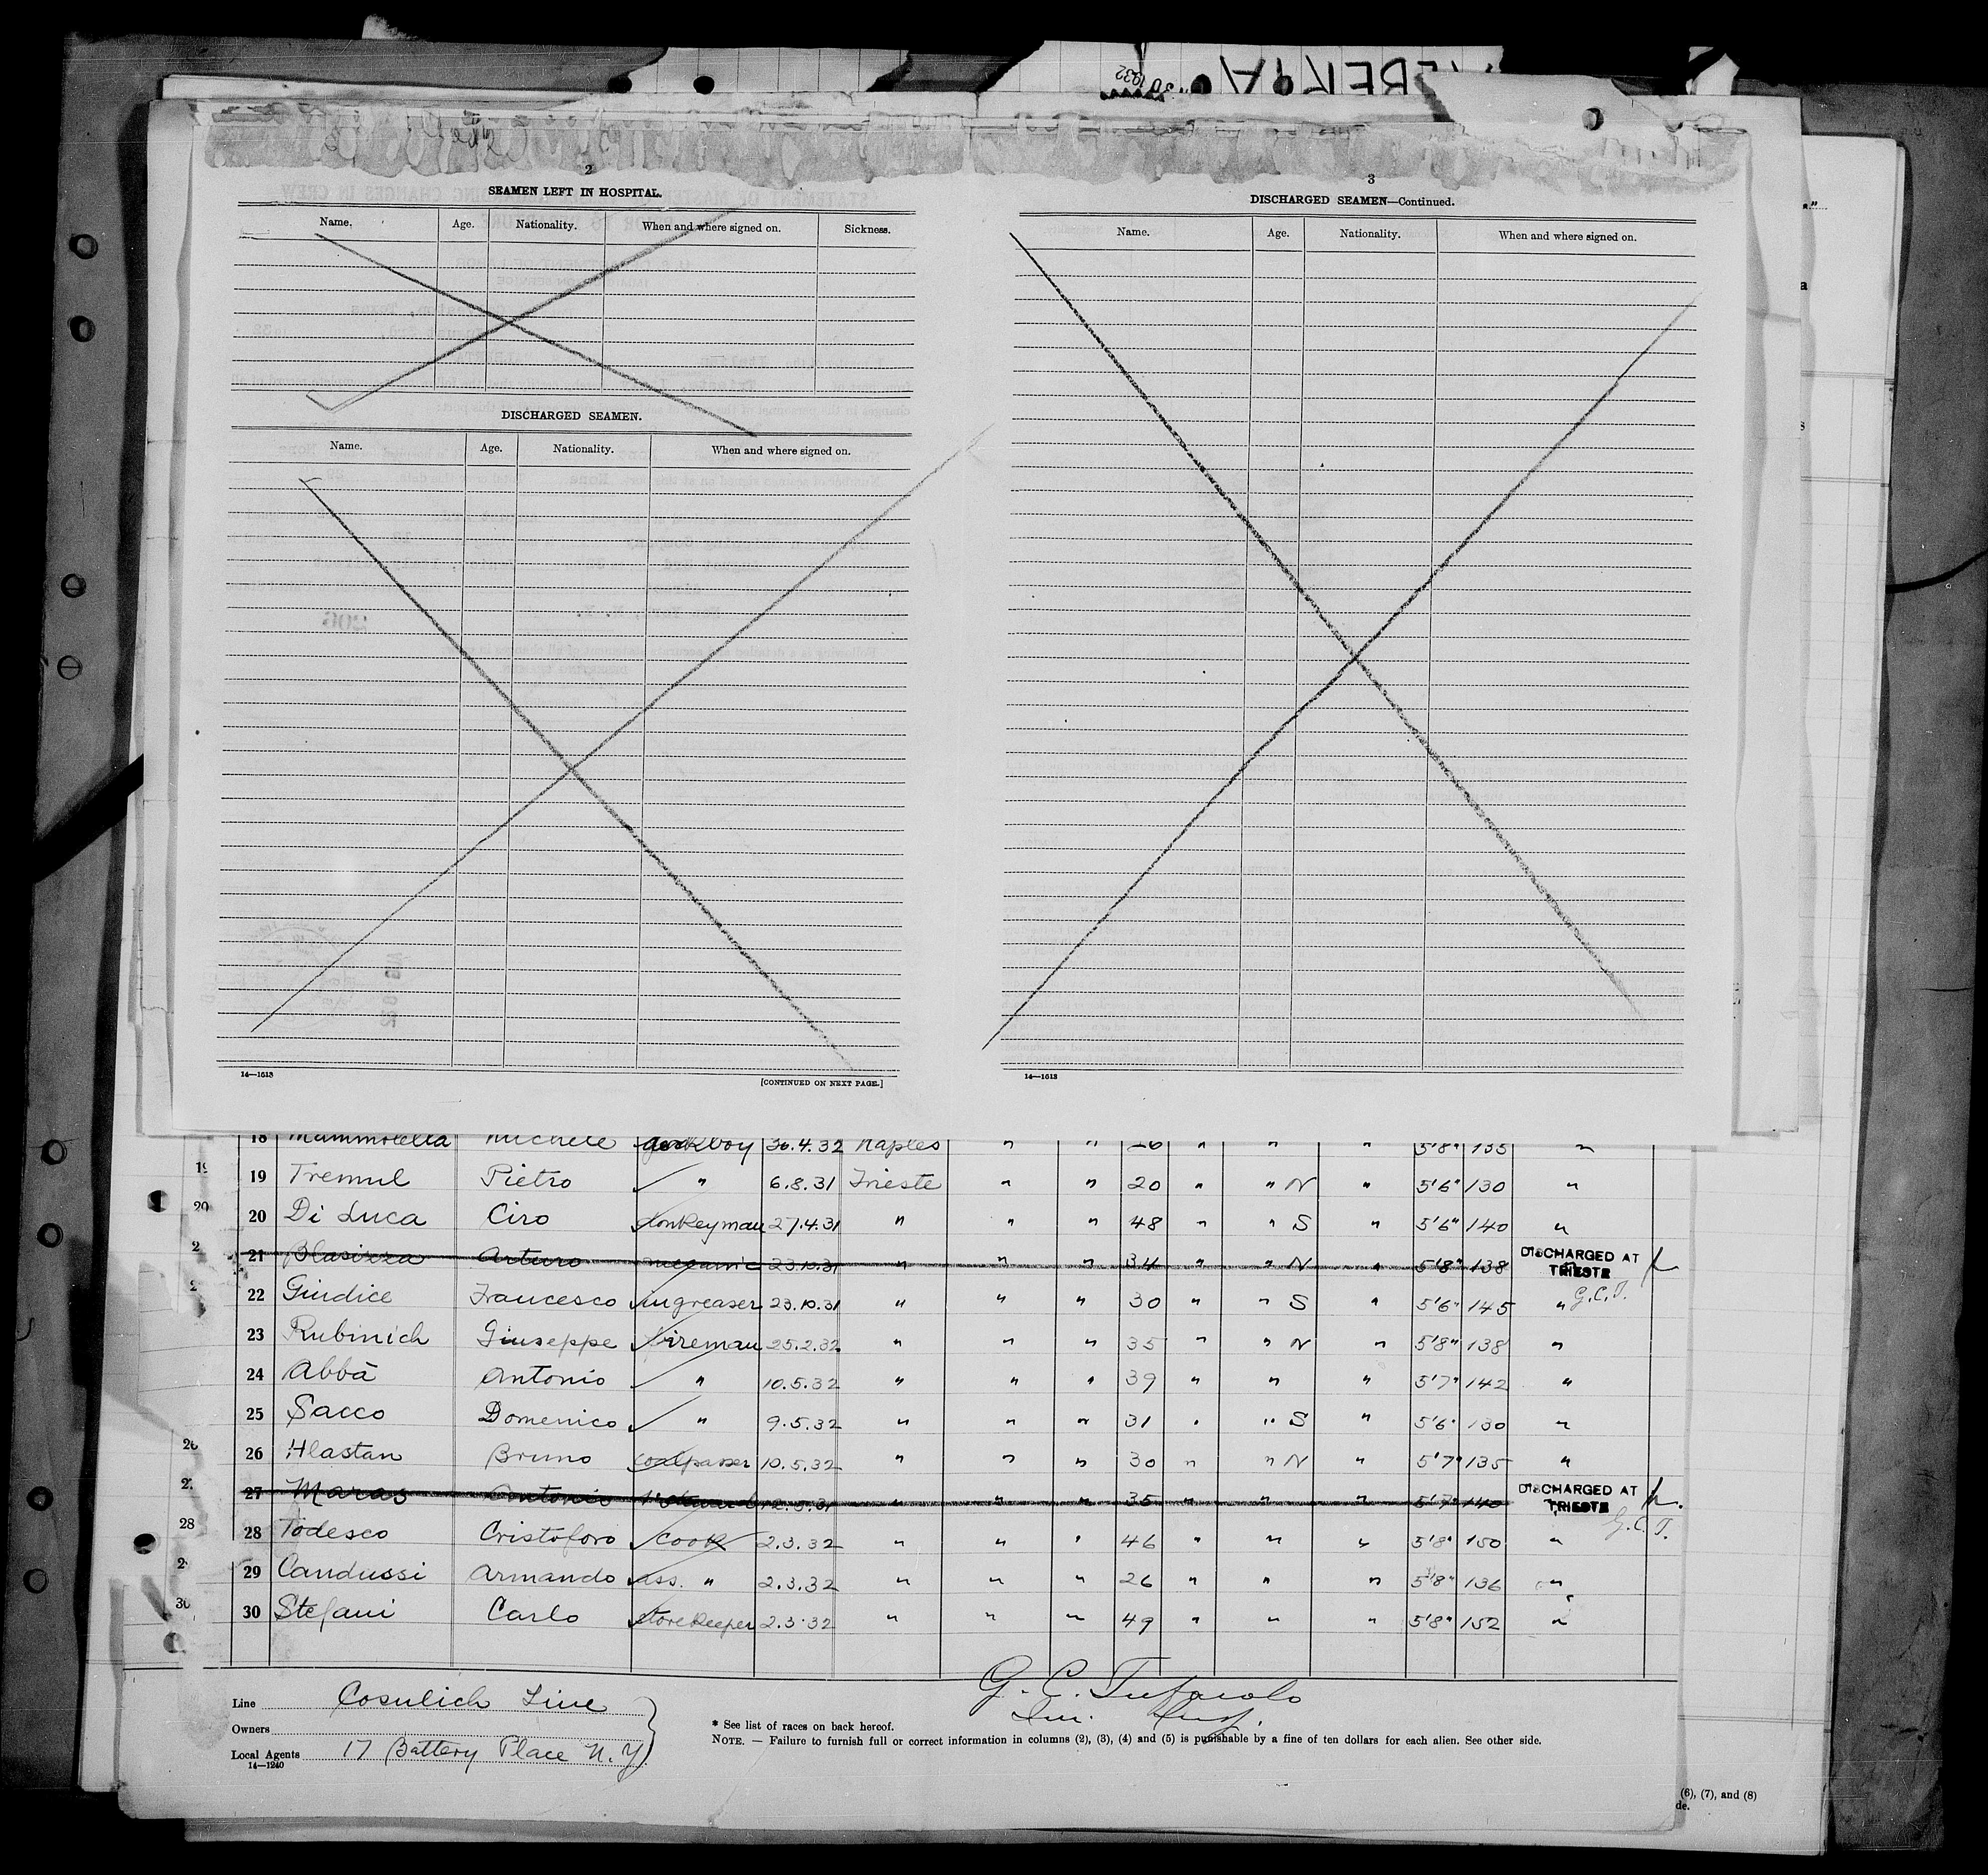 2
SEAMEN LEFT IN HOSPITAL.
Name. Age. Nationality. When and where signed on. Sickness.
DISCHARGED SEAMEN.
Name. Age. Nationality. When and where signed on.
14—1613 [CONTINUED ON NEXT PAGE.]
3
DISCHARGED SEAMEN—Continued.
Name. Age. Nationality. When and where signed on.
14—1613
18 Mammolella Michele 30.4.32 Naples " " " " " 5'8" 135 "
19 Tremul Pietro " 6.8.31 Trieste " " 20 " " N " 5'6" 130 "
20 Di Luca Ciro donkeyman 27.4.31 " " " 48 " " S " 5'6" 140 "
21 Blasizza Arturo mecanic 23.10.31 " " " 34 " " N " 5'8" 138 DISCHARGED AT TRIESTE
22 Giudice Francesco greaser 23.10.31 " " " 30 " " S " 5'6" 145 " G.C.T.
23 Rubinich Giuseppe fireman 25.2.32 " " " 35 " " N " 5'8" 138 "
24 Abbà Antonio " 10.5.32 " " " 39 " " " 5'7" 142 "
25 Sacco Domenico " 9.5.32 " " " 31 " " S " 5'6" 130 "
26 Hlastan Bruno coalpasser 10.5.32 " " " 30 " " N " 5'7" 135 "
27 Maras Antonio " " " 35 " " " 5'7" 140 DISCHARGED AT TRIESTE
G.C.T.
28 Todesco Cristoforo cook 2.3.32 " " " 46 " " " 5'8" 150 "
29 Candussi Armando ass. " 2.3.32 " " " 26 " " " 5'8" 136 "
30 Stefani Carlo storekeeper 2.3.32 " " " 49 " " " 5'8" 152 "
Line Cosulich Line
Owners
Local Agents 17 Battery Place N.Y
14—1240
G. C. Tufarolo
* See list of races on back hereof.
NOTE. — Failure to furnish full or correct information in columns (2), (3), (4) and (5) is punishable by a fine of ten dollars for each alien. See other side.
(6), (7), and (8)
de.